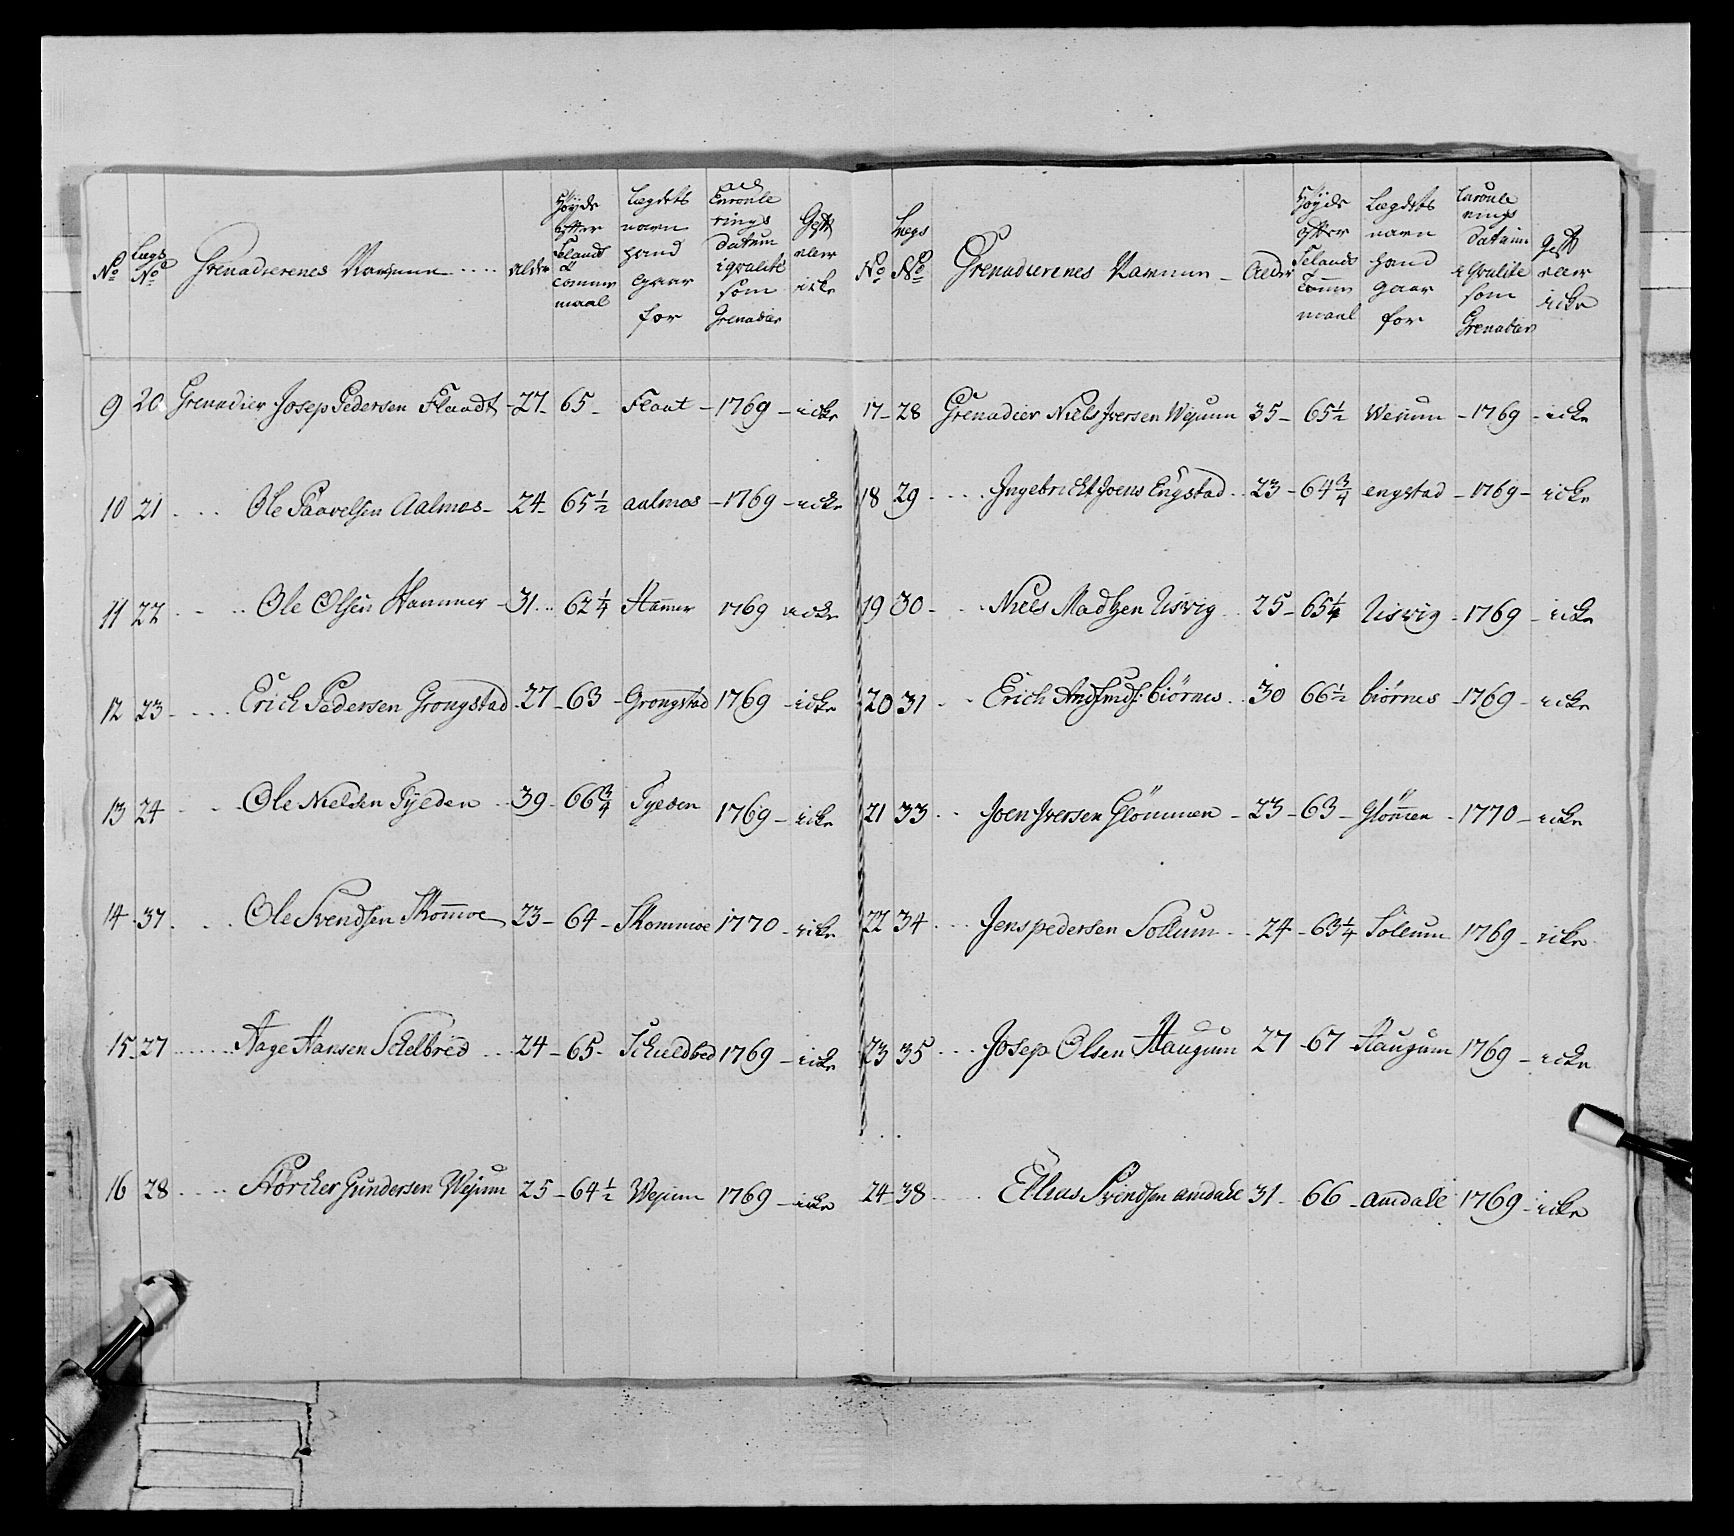 No Legs No Grenadierenes Nafnene .... alder Høyde efter Selands Tomme maal Legdets navn hand gaar for Enroule rings datum i qvalité som Grenadier Gift eller icke
9 20 Grenadier Josep Pedersen Flaadt - 27 - 65 - Flaat - 1769 - icke
10 21 .... Ole Paavelsen Aalmos - 24 - 65 1/2 aalmos - 1769 - icke
11 22 .... Ole Olsen Hammer - 31 .. 62 1/4 Hamer 1769 icke
12 23 .... Erich Pedersen Grongstad - 27 - 63 - Grongstad 1769 - icke
13 24 .... Ole Nielsen Tyeden .. 39 - 66 3/4 Tyeden 1769 - icke
14 37 .... Ole Svendsen Skomoe 23 - 64 - Skommoe 1770 - icke
15 27 ...... Aage Hansen Schelbred ... 24 - 65 - Schieldbed 1769 - icke
16 28 .... Störcher Gundersen Wejum 25 - 64 1/2 Wejum 1769 - icke
No Legs No Grenadierenes Namnen - Alder Høyde efter Selands Tomme maal Legdets navn hand gaar for Enroule rings datum i qvalite som Grenadier gift eller icke
17 - 28 Grenadier Niels Iversen Wejum 35 - 65 1/2 Wejum - 1769 - icke
18 29 .... Ingebricht Joens Engstad .. 23 - 64 3/4 engstad - 1769 - icke
19 30 - ... Niels Madtzen Usvig .. 25 - 65 1/4 Usvig - 1769 - icke
20 31 .. Erich biörnes .. 30 66 1/2 biörnes - 1769 - icke
21 33 .. Joen Iversen Glömmen - 23 - 63 - Glömen - 1770 - icke
22 34 .... Jens pedersen Sollum .. 24 - 63 1/4 Sollum 1769 - icke
23 35 .... Josep Olsen Haugum 27 - 67 - Haugum 1769 - icke
24 - 38 ..... Elleas Svendsen amdahl 31 - 66 - amdahl 1769 - icke